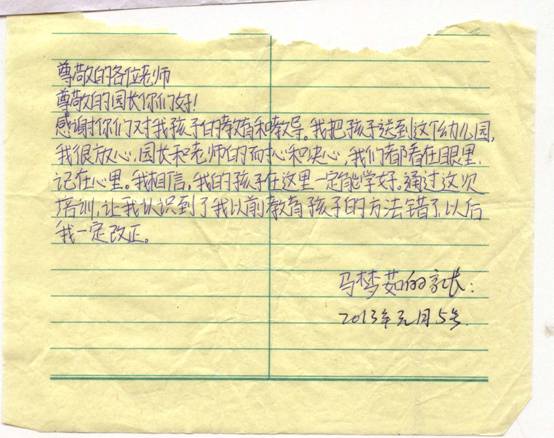 尊敬的各位老师
尊敬的园长你们好!
感谢你们对我孩子的教育和教导。我把孩子送到这个幼儿园,
我很放心,园长和老师的耐心和决心,我们都看在眼里,
记在心里。我相信,我的孩子在这里一定能学好。通过这次
培训,让我认识到了我以前教育孩子的方法错了,以后
我一定改正。
马梦茹的家长:
2013年元月5号.